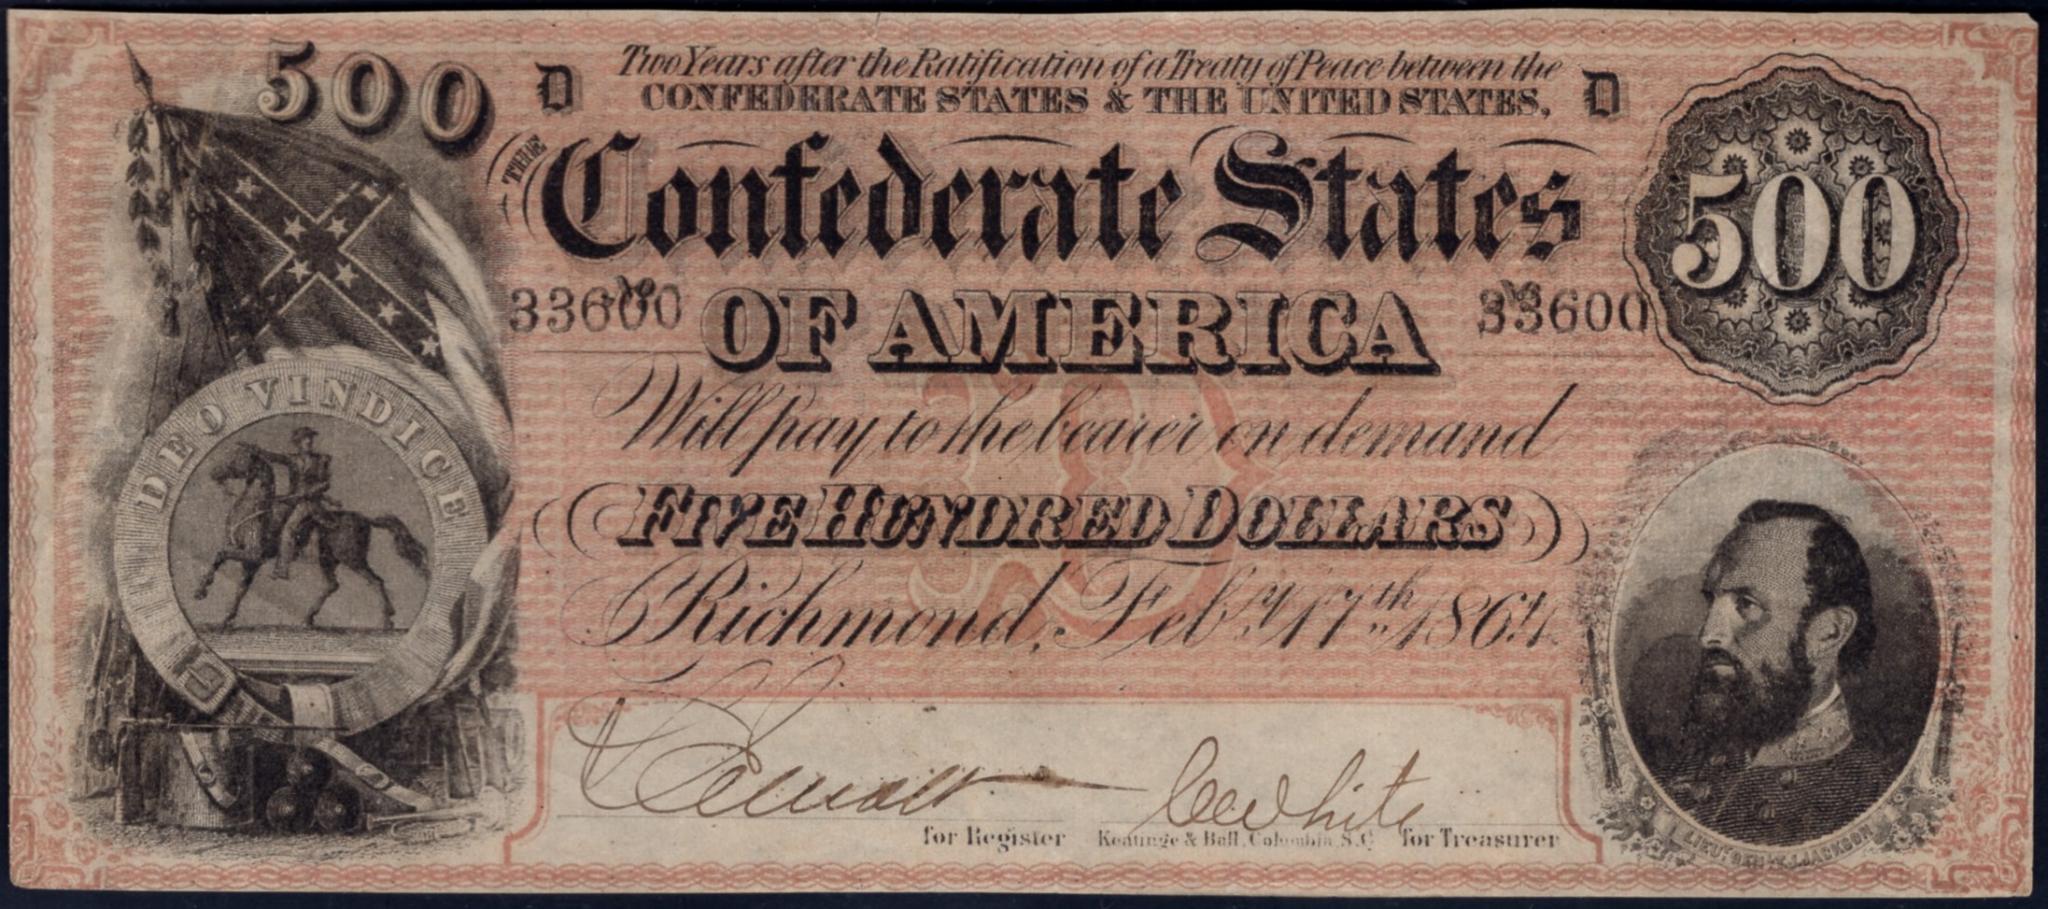 500
D Two Years after the Ratification of a Treaty of Peace between the D
CONFEDERATE STATES & THE UNITED STATES,
THE Confederate States
500
No 33600 No 33600
OF AMERICA
Will pay to the bearer on demand
FIVE HUNDRED DOLLARS
Richmond, Feby. 17th 1864.
D
DEO VINDICE
C White
for Register Keatinge & Ball, Columbia, S.C. for Treasurer
LIEUT GEN T.J. JACKSON